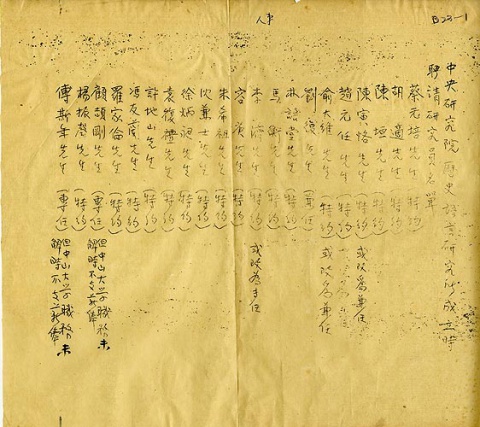 人事
B23-1
中央研究院歷史語言研究所成立時
聘請研究員名單
蔡元培先生 (特約)
胡適先生 (特約)
陳垣先生 (特約)
陳寅恪先生 (特約) 或改爲兼任
趙元任先生 (特約)
俞大維先生 (特約) 或改爲兼任
劉復先生 (兼任)
林語堂先生 (特約)
馬衡先生 (特約)
李濟先生 (特約) 或改為專任
容庚先生 (特約)
朱希祖先生 (特約)
沈兼士先生 (特約)
徐炳昶先生 (特約)
袁復禮先生 (特約)
許地山先生 (特約)
馮友蘭先生 (特約)
羅家倫先生 (特約)
顧頡剛先生 (專任) 但中山大學職務未
解時不支薪俸
楊振聲先生 (特約)
傅斯年先生 (專任) 但中山大學職務未
解時不支薪俸